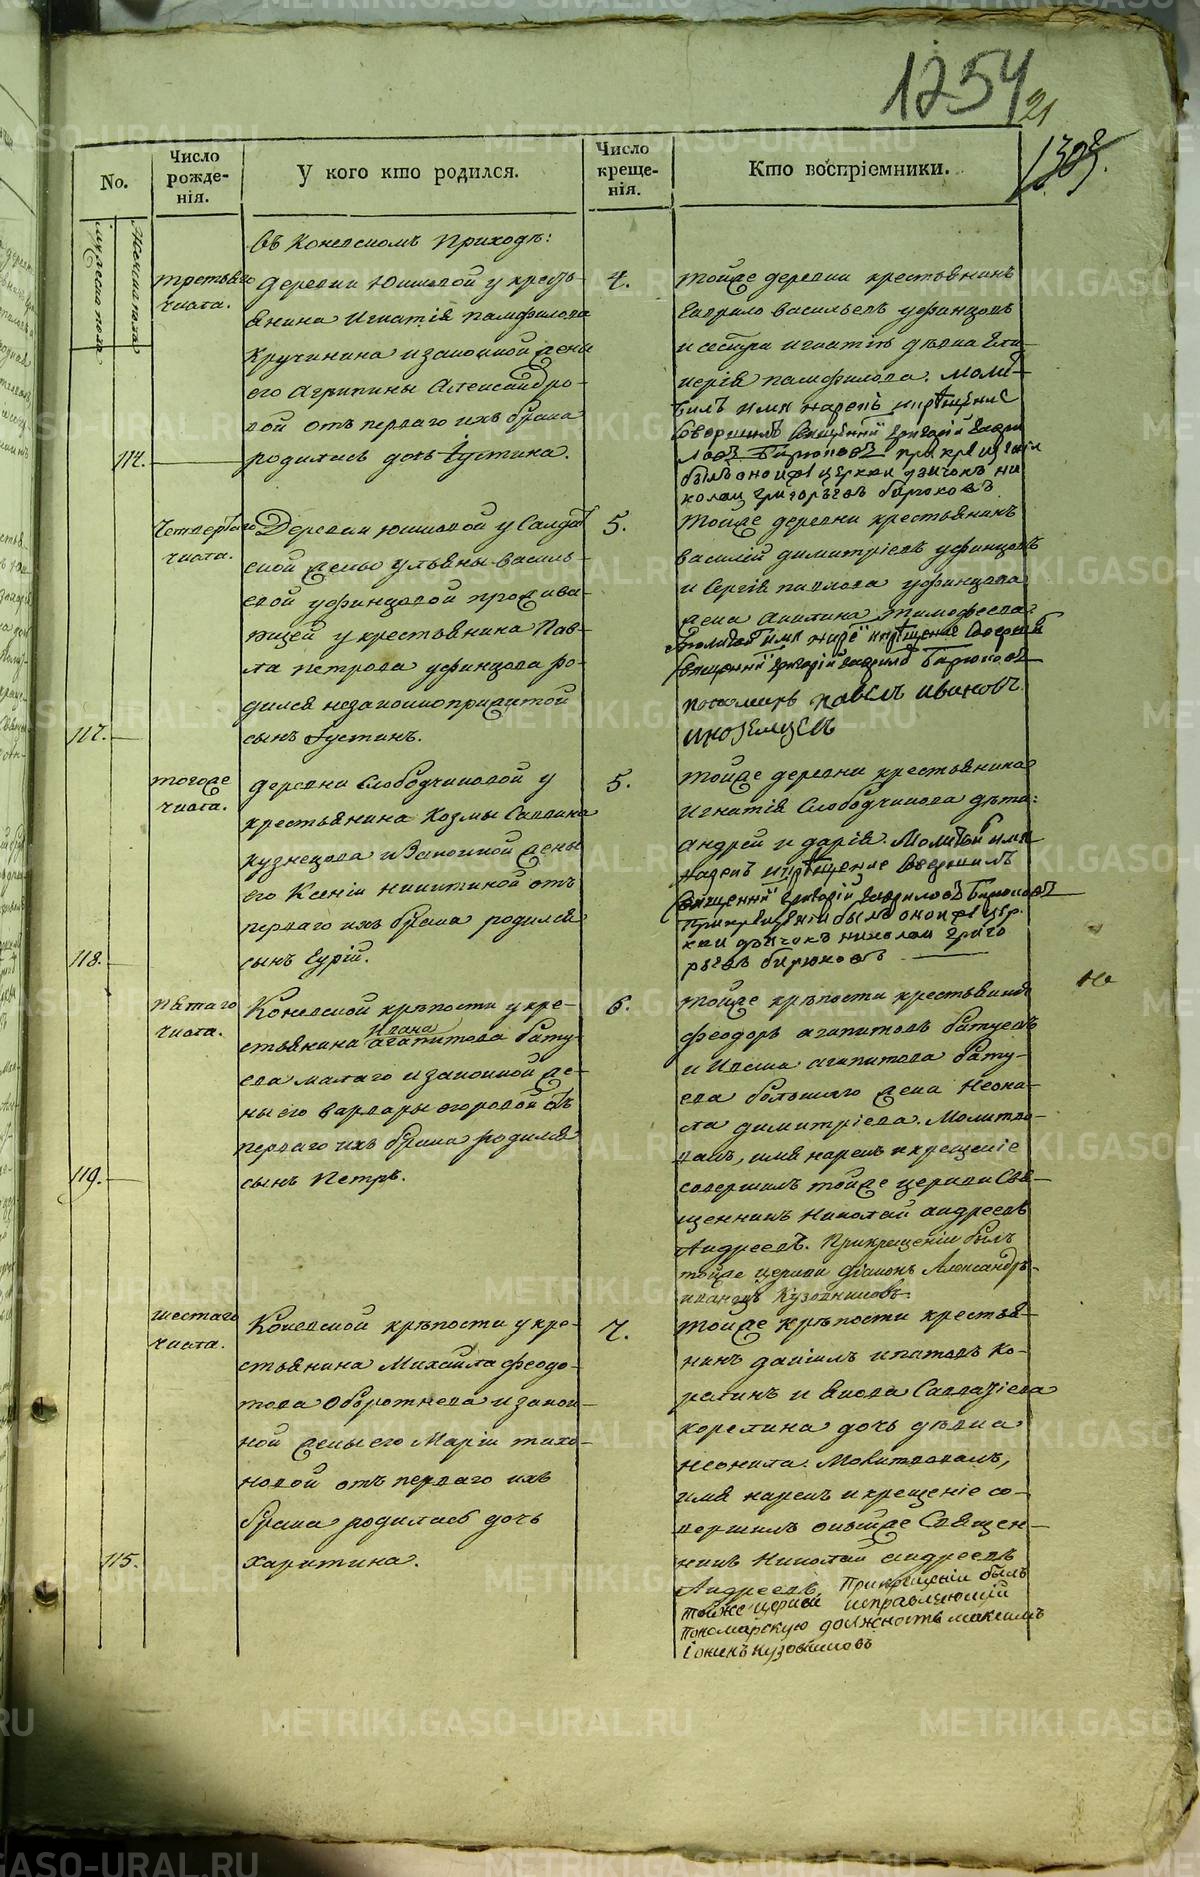 1254
21
1303.
No.
Число рожде-нія.
У кого кто родился.
Число креще-нія.
Кто воспріемники.
Мужеска пола
Женска пола
Въ Коневскомъ Приходѣ:
третьяго числа.
114.
деревни Юшковой у кресть-
янина Игнатія Памфилова
Кручинина и законной жены
его Агрипины Александро-
вой отъ перваго ихъ брака
родилась дочь Іустина.
4.
тойже деревни крестьянинъ
Гаврило Васильевъ Уфинцовъ
и сестра Игнатія дѣвка Гли-
керія Памфилова. Молит-
вилъ имя нарекъ и крѣщение
совершилъ священник Григорій Гаври
ловъ Бирюковъ при крещеніи
былъ оной же церкви дьячокъ Ни
колай Григорьевъ Бирюковъ
четвертаго числа.
117.
Деревни Юшковой у Салдат
ской жены Ульяны Василь-
евой Уфинцовой прожива-
ющей у крестьянина Пав-
ла Петрова Уфинцова ро-
дился незаконноприжитой
сынъ Іустинъ.
5.
Тойже деревни крестьянинъ
Василій Димитріевъ Уфинцовъ
и Сергія Павлова Уфинцова
жена Акилина Тимофеева
Молитвой имя наре и крѣщение Соверши
Священник Григорій Гаврилов Бирюковъ
пономарь Павелъ Ивановъ
Иноземцевъ
тогоже числа.
118.
деревни Слободчиковой у
крестьянина Козмы Саввина
Кузнецова и Законной жены
его Ксеніи Никитиной отъ
перваго ихъ брака родился
сынъ Гурій.
5.
тойже деревни крестьянина
Игнатія Слободчикова дѣти:
Андрей и Дарія. Молитвой имя
нарекъ и крѣщение Совершилъ
Священник Григорій Гавриловъ Бирюковъ
При крещеніи былъ оной же цер.
кви дьячокъ Николай Григо
рьевъ Бирюковъ
пятаго числа.
119.
Коневской крѣпости у кре-
Ивана
стьянина Агапитова Бату-
ева малаго и законной же-
ны его Варвары Егоровой отъ
перваго ихъ брака родился
сынъ Петръ.
6.
тойже крѣпости крестьянинъ
Феодоръ Агапитовъ Батуевъ
и Ивана Агапитова Бату-
ева большаго жена Неони-
ла Димитріева. Молитво-
валъ, имя нарекъ и крещеніе
совершилъ тойже церкви Свя-
щенникъ Николай Андреевъ
Андреевъ. При крещеніи былъ
тойже церкви діаконъ Александръ
Ивановъ Кузовниковъ
Не
шестаго числа.
115.
Коневской крѣпости у кре-
стьянина Михайла Феодо-
това Оборотнева и закон-
ной жены его Маріи Тихо-
новой отъ перваго ихъ
брака родилась дочь
Харитина.
7.
тойже крѣпости крестья-
нинъ Даніилъ Ипатовъ Ко-
релинъ и Якова Савватіева
Корелина дочь дѣвка
Неонила. Молитвовалъ,
имя нарекъ и крещеніе со-
вершилъ онойже Священ-
никъ Николай Андреевъ
Андреевъ. При крещеніи былъ
тойже церкви исправляющій
пономарскую должность Максимъ
Іонинъ Кузовниковъ